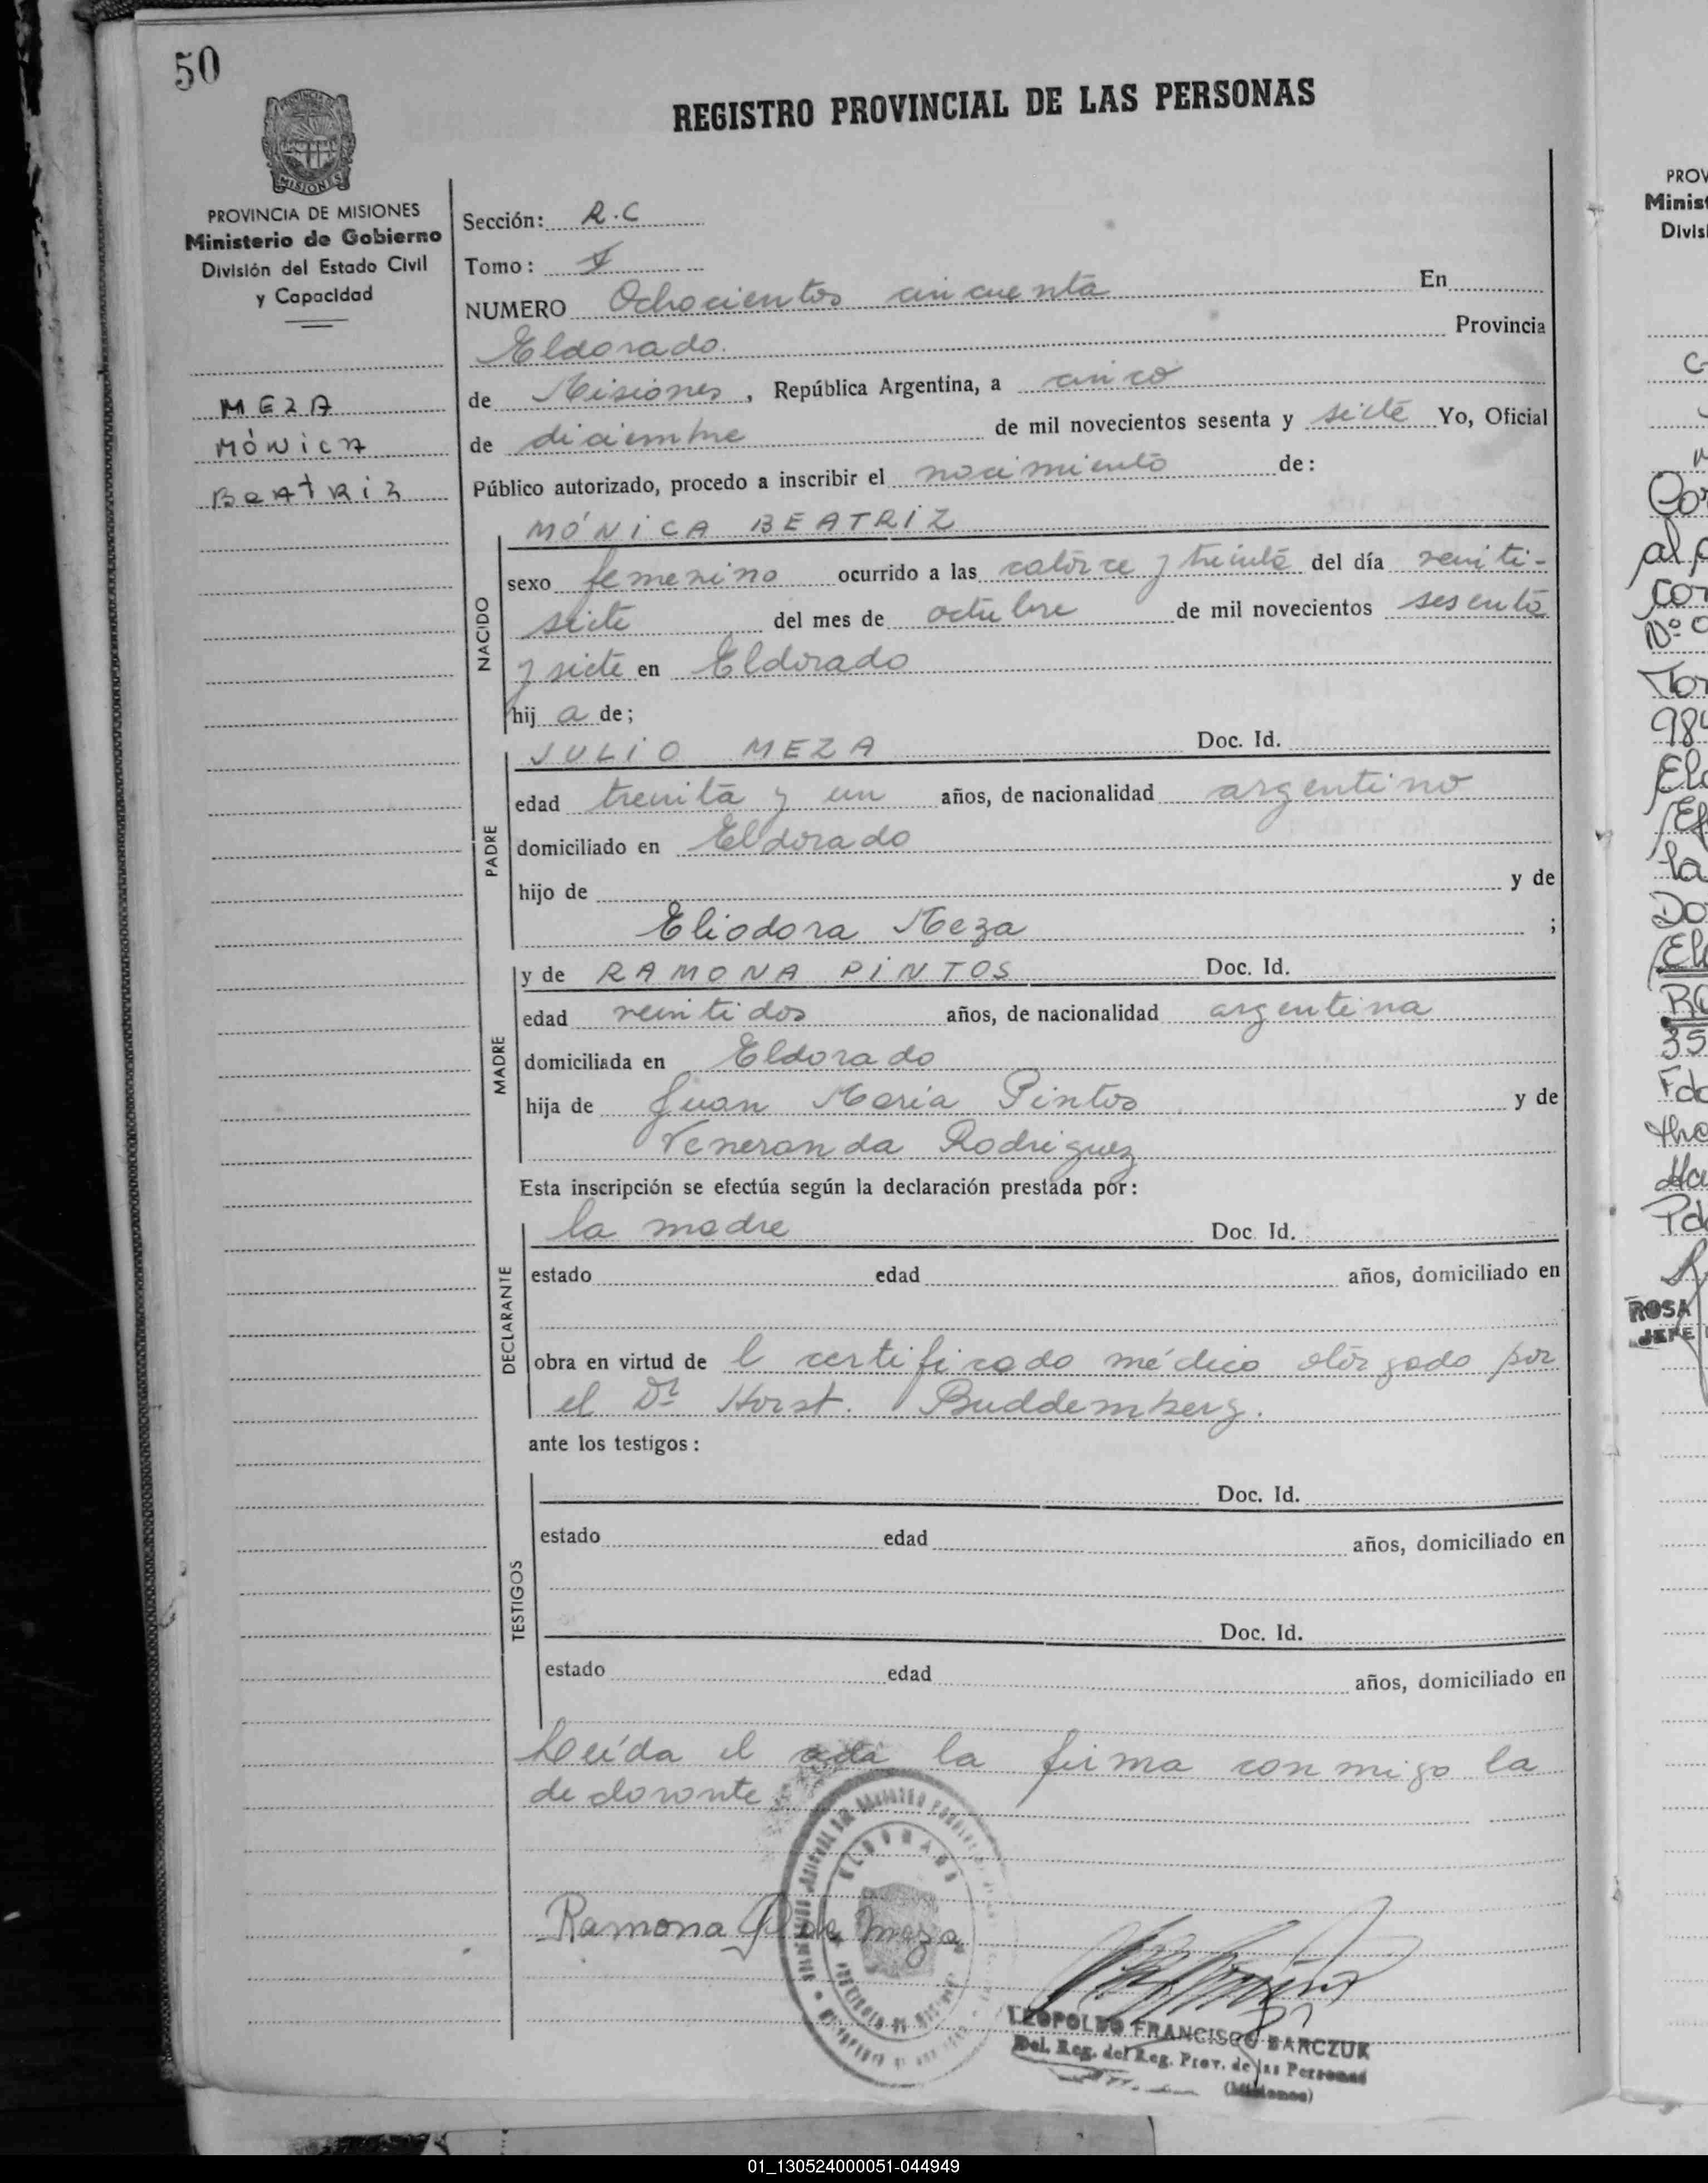 50
REGISTRO PROVINCIAL DE LAS PERSONAS
MISIONES
PROVINCIA DE MISIONES
Ministerio de Gobierno
División del Estado Civil
y Capacidad
MEZA
MÓNICA
BEATRIZ
Sección: R.C
Tomo: I
NUMERO Ochocientos cincuenta En
Eldorado. Provincia
de Misiones, República Argentina, a cinco
de diciembre de mil novecientos sesenta y siete Yo, Oficial
Público autorizado, procedo a inscribir el nacimiento de:
NACIDO
MÓNICA BEATRIZ
sexo femenino ocurrido a las catorce y treinta del día veinti-
siete del mes de octubre de mil novecientos sesenta
y siete en Eldorado
hij a de;
PADRE
JULIO MEZA Doc. Id.
edad treinta y un años, de nacionalidad argentino
domiciliado en Eldorado
hijo de y de
Eliodora Meza ;
MADRE
y de RAMONA PINTOS Doc. Id.
edad veintidos años, de nacionalidad argentina
domiciliada en Eldorado
hija de Juan María Pintos y de
Veneranda Rodriguez
Esta inscripción se efectúa según la declaración prestada por:
DECLARANTE
la madre Doc. Id.
estado edad años, domiciliado en
obra en virtud de l certificado médico otorgado por
el Dr Horst. Buddemberg.
ante los testigos:
TESTIGOS
Doc. Id.
estado edad años, domiciliado en
Doc. Id.
estado edad años, domiciliado en
Leída el acta la firma conmigo la
declarante
ELDORADO
Ramona P de Meza
LEOPOLDO FRANCISCO BARCZUK
Del. Reg. del Reg. Prov. de las Personas
(Misiones)
PROV
Minist
Divis
ROSA
JEFE
01_130524000051-044949